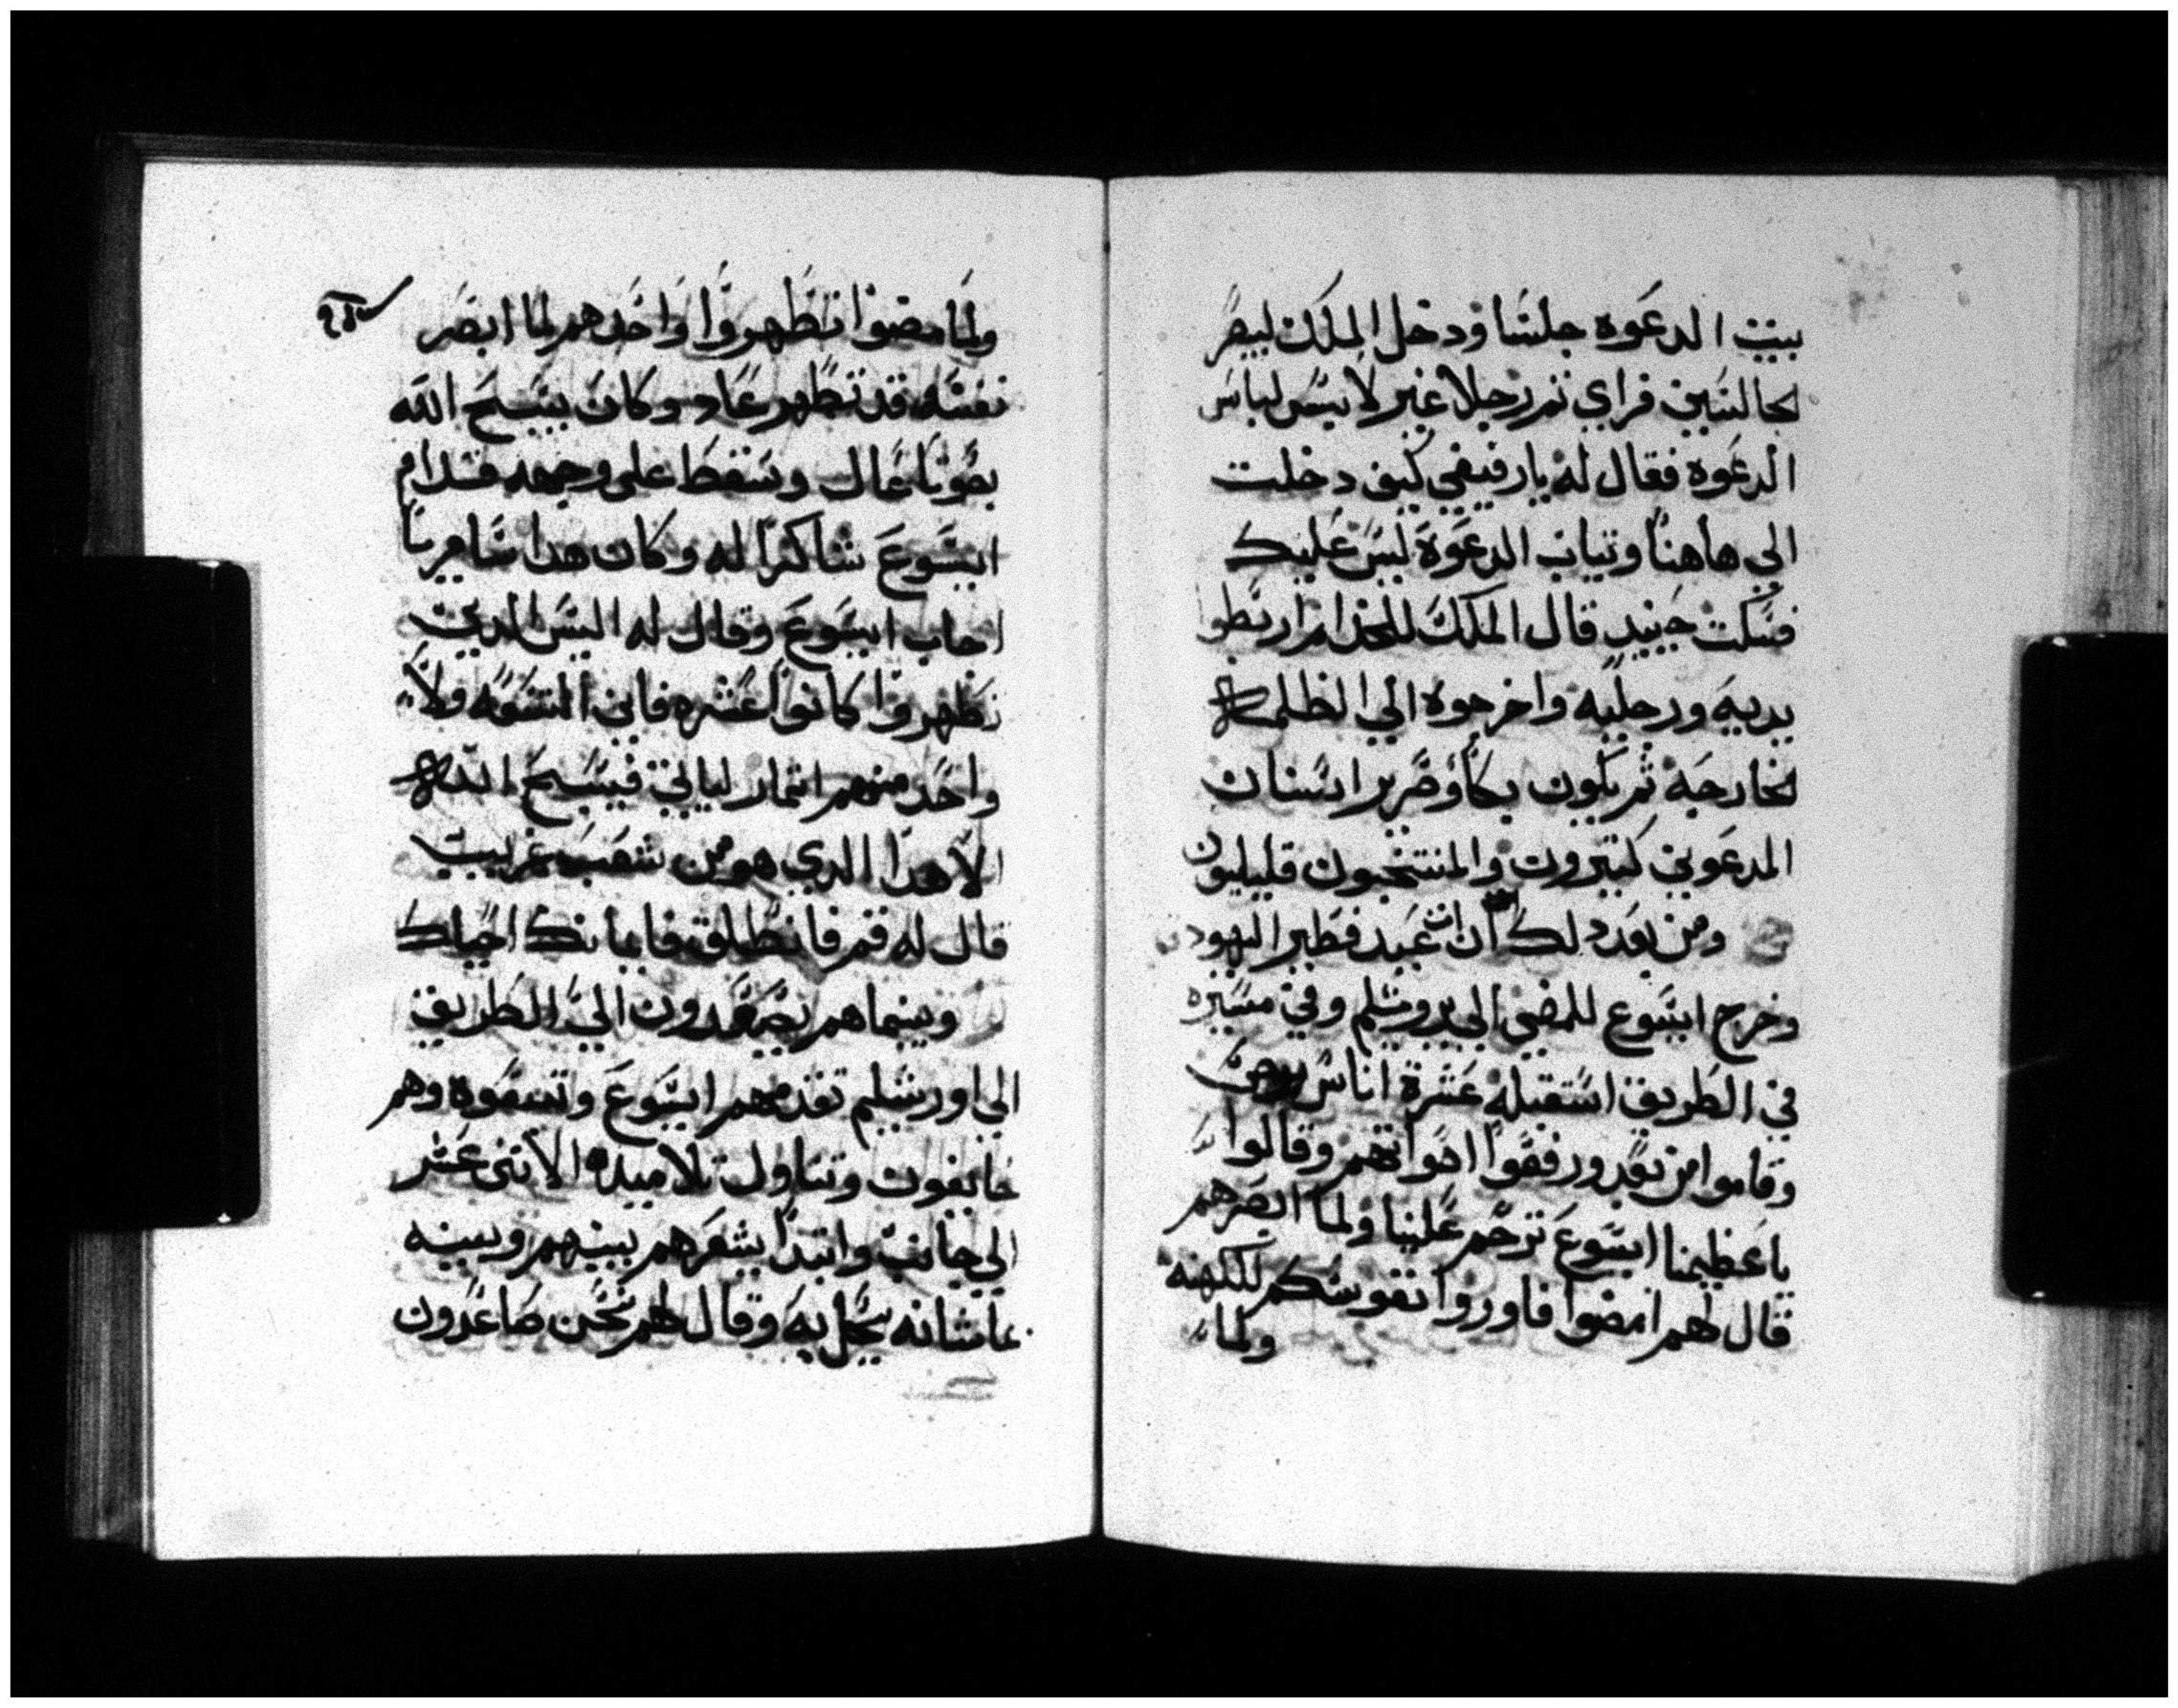 بيت الدعوه جلسا ودخل الملك ليبصر
الجالسين فراي ثم رجلا غير لابس لباس
الدعوه فقال له يارفيقي كيف دخلت
الي هاهنا وتياب الدعوة ليس عليك
فسكت حينيد قال الملك للخدام اربطوا
يديه ورجليه واخرجوه الي الظلمه
الخارجه ثم يكون بكا وضرير اسنان
المدعوين كتيرون والمنتخبون قليليون
ومن بعد دلك ان عيد فطير اليهود
وخرج ايسوع للمضي الي يروشلم وفي مسيره
في الطريق استقبله عشرة اناس برص
وقاموا من بعد ورفعوا اصواتهم وقالوا
ياعظيمنا ايسوع ترحم علينا ولما ابصرهم
قال لهم امضوا فاوروا نفوسكم للكهنه
ولما
ولما مضوا تطهروا واحدهم لما ابصر
نفسه قد تطهر عاد وكان يسبح الله
بصوتا عال وسقط علي وجهه قدام
ايسوع شاكرا له وكان هدا سامريا
اجاب ايسوع وقال له اليس الدين
تطهروا كانوا عشره فاين التسعه ولا
واحد منهم اتمار لياتي فيسبح الله
الا هدا الدي هو من شعب غريب
قال له قم فانطلق فايمانك احياك
وبينما هم يصعدون الي الطريق
الي اورشلم تقدمهم ايسوع وتبعوه وهم
خايفون وتناول تلاميده الاتني عشر
الي جانب وابتدا يشعرهم بينهم وبينه
ماشانه يحل به وقال لهم نحن صاعدون